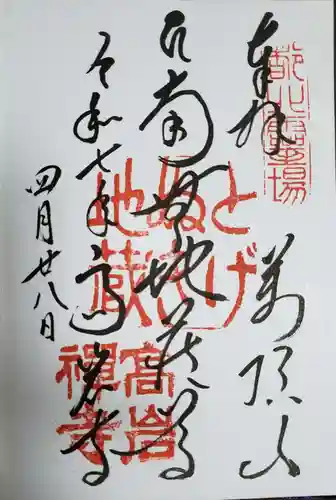 奉拝
萬頂山
南無地蔵尊
令和七年 高岩寺
四月廿八日
都心霊場
とげぬき地蔵
高岩禅寺